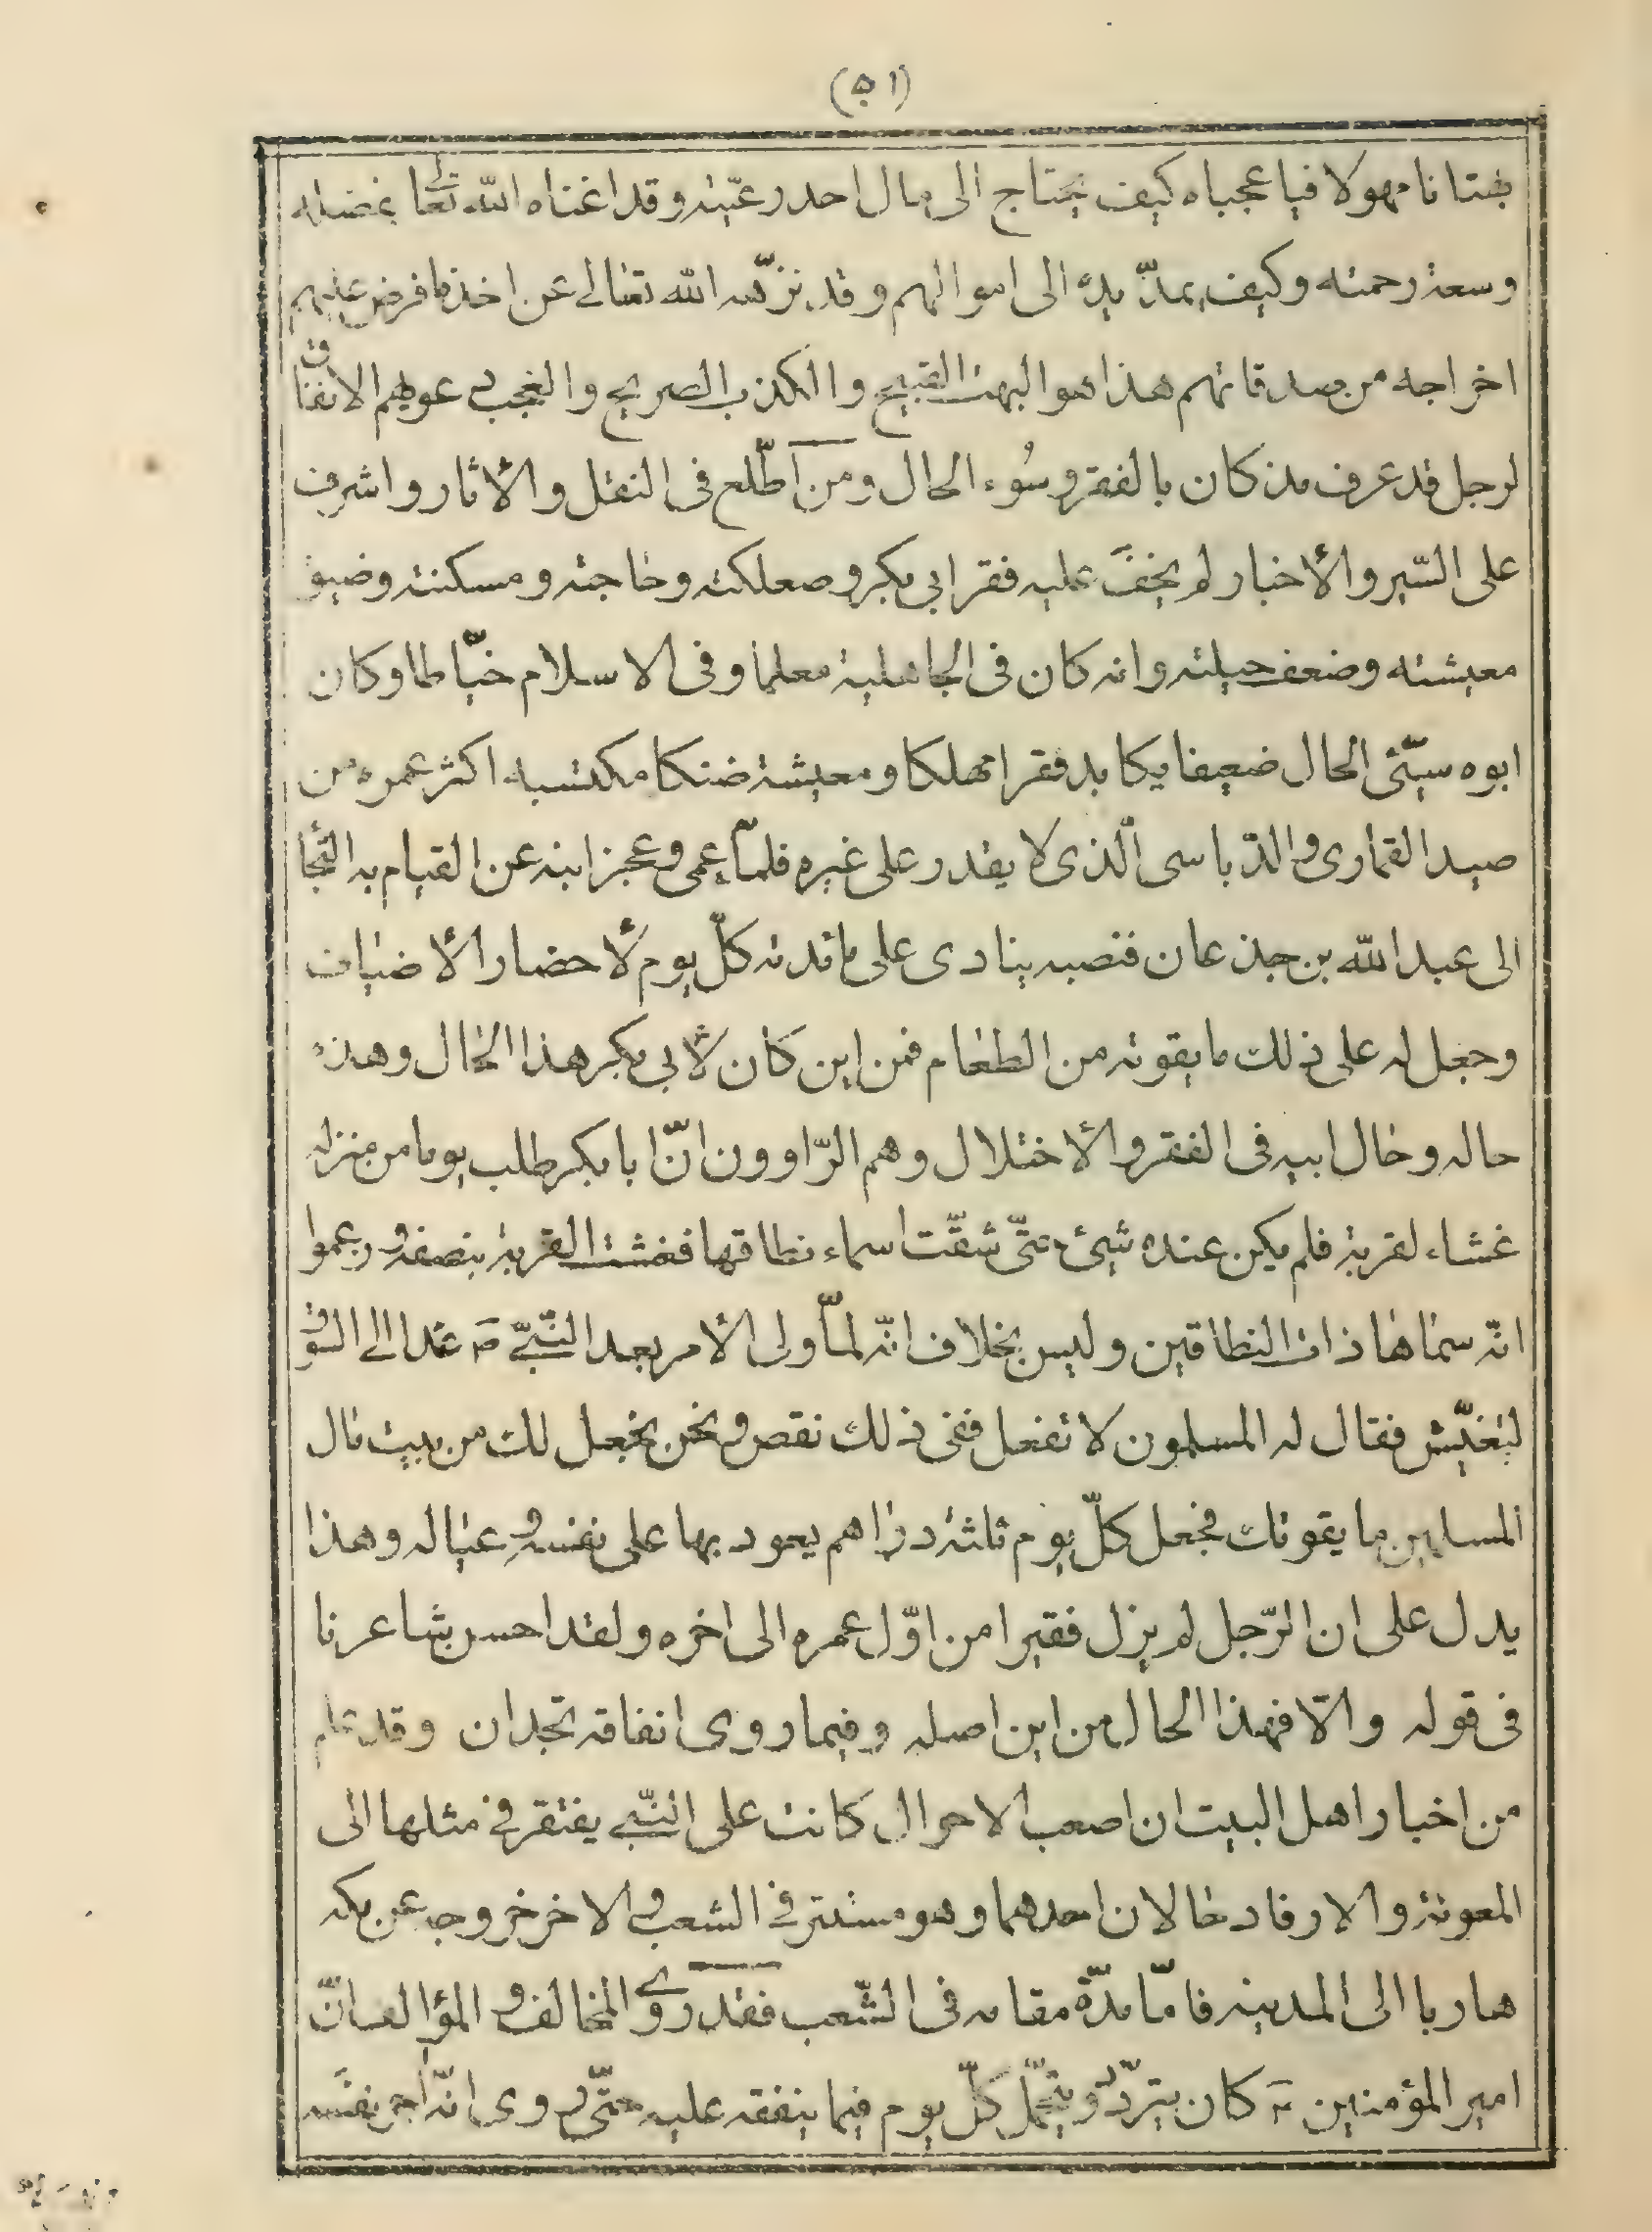 (٥١)
بهتانا مهولا فيا عجباه كيف يحتاج الى مال احد رعيّته وقد اغناه الله تعا بفضله
وسعة رحمته وكيف يمدّ يده الى اموالهم وقد نزّهه الله تعالى عن اخذ ما فرض عليهم
اخراجه من صدقاتهم هذا هو البهت القبيح والكذب الصريح والعجب دعويهم الانفاق
لرجل قد عرف مذ كان بالفقر وسُوء الحال ومن اطّلع فى النقل والأثار واشرف
على السّير والأخبار لم يخفَ عليه فقر ابى بكر وصعلكته وحاجته ومسكنته وضيق
معيشته وضعف حيلته وانه كان فى الجاهلية معلما وفى الاسلام خيّاطا وكان
ابوه سيّئ الحال ضعيفا يكابد فقرا مهلكا ومعيشة ضنكا مكتسبه اكثر عمره من
صيد القمارى والدّباسى الّذى لا يقدر على غيره فلمّا عمى وعجز ابنه عن القيام به التجا
الى عبد الله بن جذعان فنصبه ينادى على مائدته كلّ يوم لأحضار الأضياف
وجعل له على ذلك ما يقوته من الطعام فمن اين كان لأبى بكر هذا الحال وهذه
حاله وحال ابيه فى الفقر والأختلال وهم الرّاوون انّ ابا بكر طلب يوما من منزله
غشاء لقربة فلم يكن عنده شئ حتّى شقّت اسماء نطاقها فغشت القربة بنصفه وزعموا
انّه سماها ذات النطاقين وليس بخلاف انّه لمّا ولى الأمر بعد النّبىّ ص غدا الى السّوق
ليغيّش فقال له المسلمون لا تفعل ففى ذلك نقص ونحن نجعل لك من بيت مال
المسلمين ما يقوتك فجعل كلّ يوم ثلثة دراهم يعود بها على نفسه وعياله وهذا
يدل على ان الرّجل لم يزل فقيرا من اوّل عمره الى اخره ولقد احسن شاعرنا
فى قوله والّا فهذا الحال من اين اصله وفيما روى انفاقه تجدان وقد علم
من اخبار اهل البيت ان اصعب الاحوال كانت على النّبى يفتقر فى مثلها الى
المعونة والارفاد حالان احدهما وهو مستتر فى الشعب والاخر خروجه عن مكه
هاربا الى المدينه فامّا مدّة مقامه فى الشّعب فقد روى المخالف والمؤالف انّ
امير المؤمنين ع كان يتردّد ويتحمّل كلّ يوم فيما ينفقه عليه حتّى روى انّه اجر نفسه